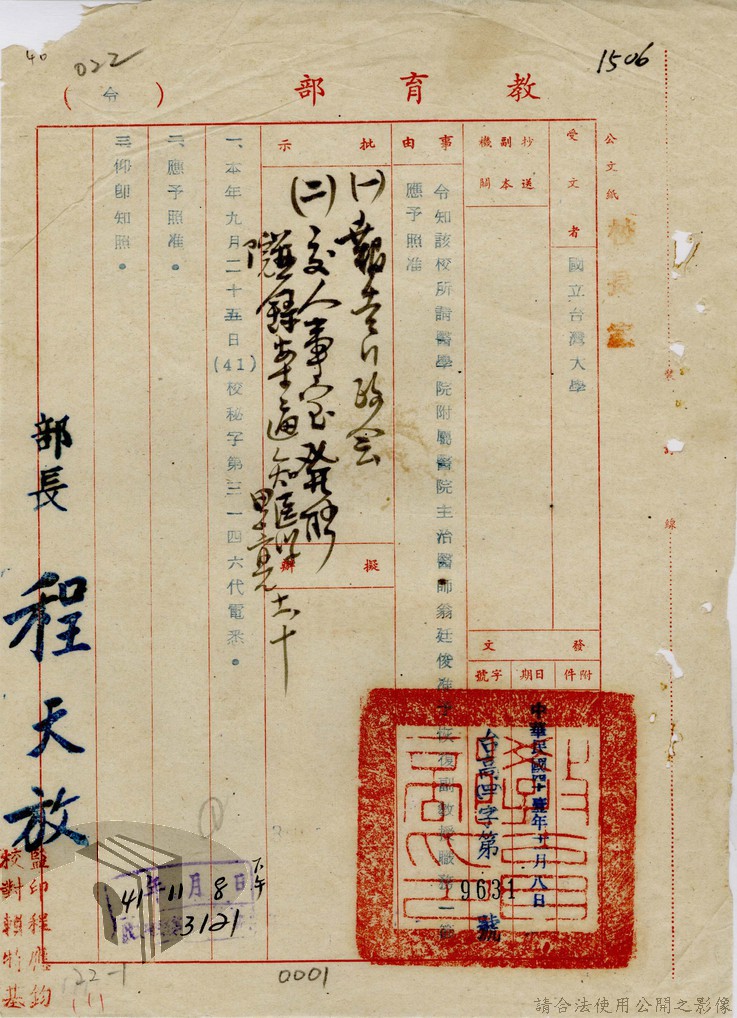 1506
40
022
教育部
(令)
公文紙
校長室
裝
訂
線
受文者
國立台灣大學
抄送
副本
機關
事由
令知該校所請醫學院附屬醫院主治醫師翁廷俊准予恢復副教授職務一節
應予照准
批示
(一)報告行政會
(二)交人事室發聘
擬辦
一、本年九月二十五日(41)校秘字第三一四六代電悉。
二、應予照准。
三、仰卽知照。
發文
附件
日期
字號
中華民國四十壹年十一月八日
台高四字第9631號
部長 程天放
監印程應鈞
校對賴特基
41年11月8日下午
3121
22-1
(1)
0001
請合法使用公開之影像